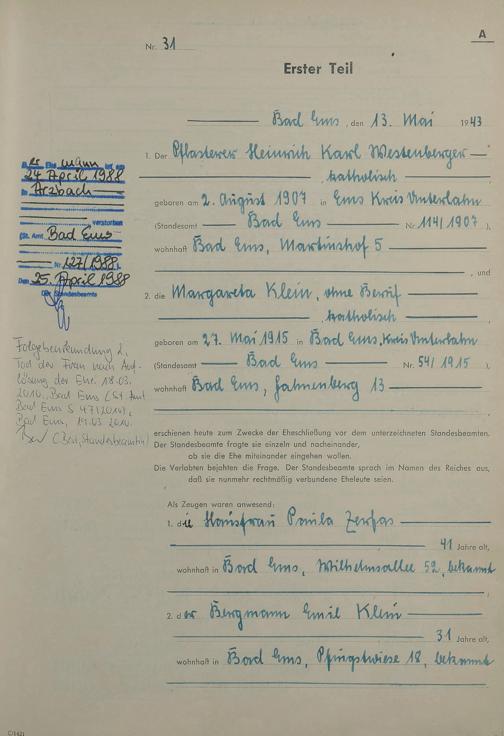 A
Nr. 31
Erster Teil
Bad Ems, den 13. Mai 1943
1. Der Pflasterer Heinrich Karl Westenberger
katholisch
geboren am 2. August 1907 in Ems Kreis Unterlahn
(Standesamt Bad Ems Nr. 114/1907)
wohnhaft Bad Ems, Martinshof 5
, und
2. die Margareta Klein, ohne Beruf
katholisch
geboren am 27. Mai 1915 in Bad Ems, Kreis Unterlahn
(Standesamt Bad Ems Nr. 54/1915)
wohnhaft Bad Ems, Hahnenberg 13
erschienen heute zum Zwecke der Eheschließung vor dem unterzeichneten Standesbeamten.
Der Standesbeamte fragte sie einzeln und nacheinander,
ob sie die Ehe miteinander eingehen wollen.
Die Verlobten bejahten die Frage. Der Standesbeamte sprach im Namen des Reiches aus,
daß sie nunmehr rechtmäßig verbundene Eheleute seien.
Als Zeugen waren anwesend:
1. die Hausfrau Paula Zerfas
41 Jahre alt,
wohnhaft in Bad Ems, Wilhelmsallee 52, bekannt
2. der Bergmann Emil Klein
31 Jahre alt,
wohnhaft in Bad Ems, Pfingstwiese 18, bekannt
Der Ehemann ist am
24. April 1988
in Arzbach
verstorben
(St. Amt Bad Ems
Nr. 127/1988)
Den 25. April 1988
Der Standesbeamte
Folgebeurkundung 2.
Tod der Frau nach Auf-
lösung der Ehe. 18.03.
2010, Bad Ems (St Amt
Bad Ems S 47/2010).
Bad Ems, 19.03.2010.
Standesbeamtin)